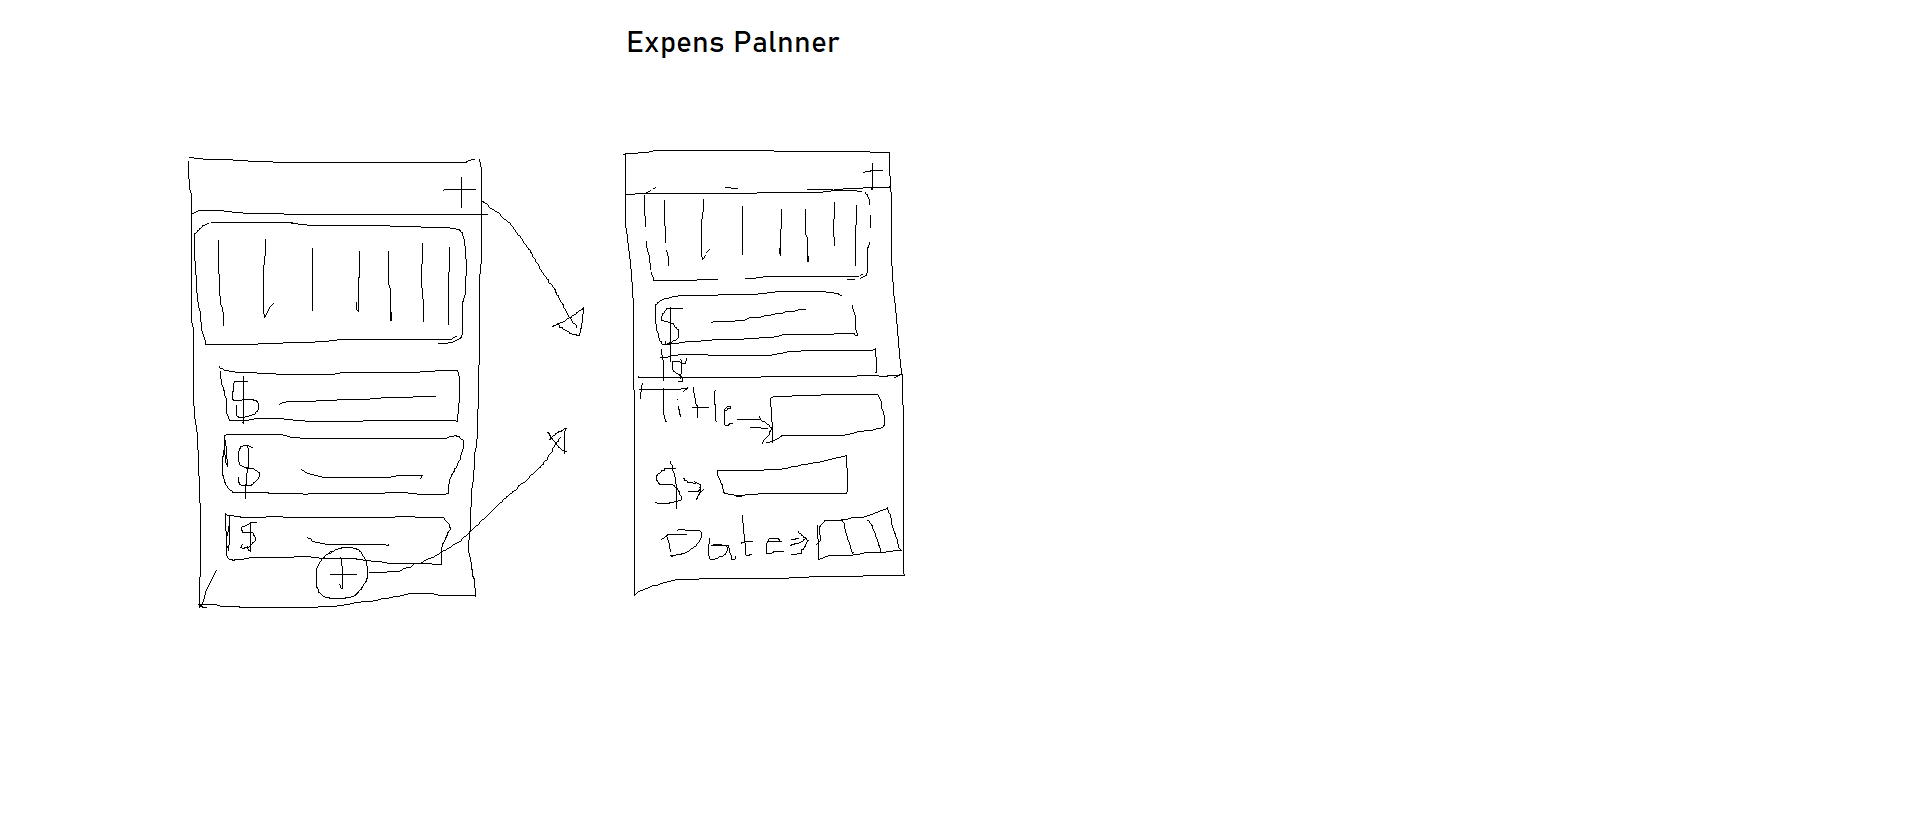 Expens Palnner
+
+
$
$
$
$
$
+
Title
$
Date